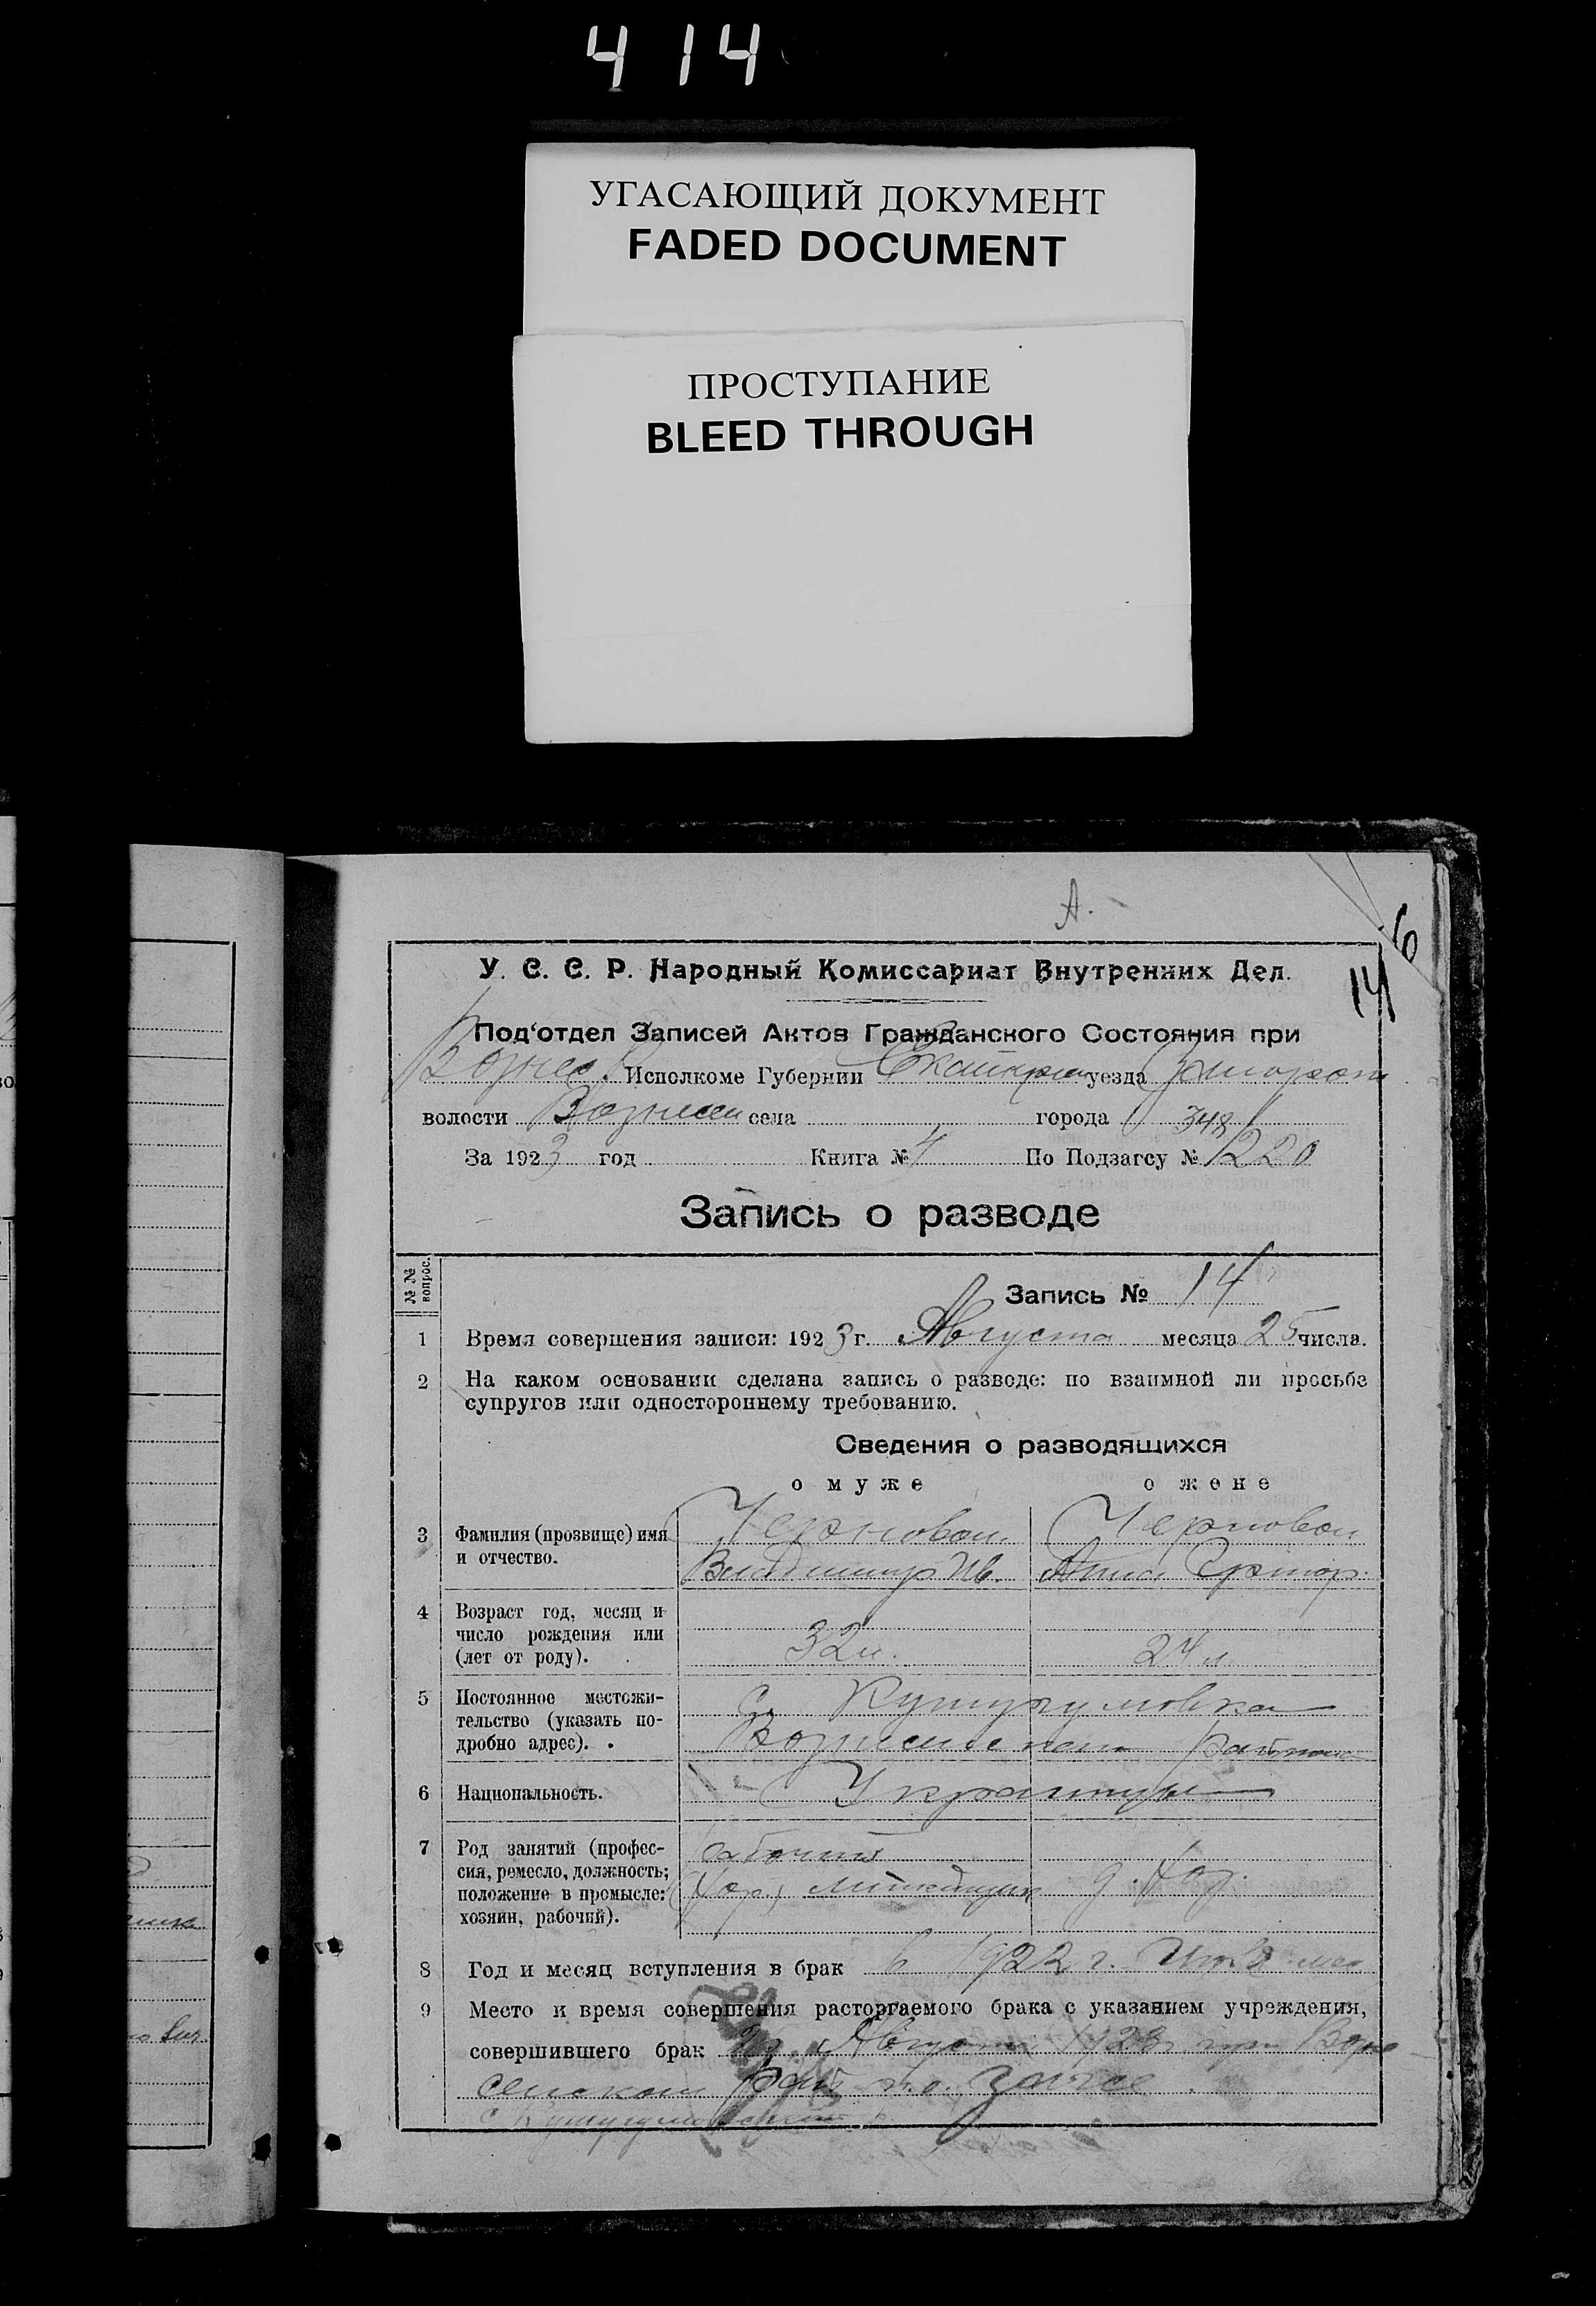 414
УГАСАЮЩИЙ ДОКУМЕНТ
FADED DOCUMENT
ПРОСТУПАНИЕ
BLEED THROUGH
А.
6
14
У. С. С. Р. Народный Комиссариат Внутренних Дел.
Под‘отдел Записей Актов Гражданского Состояния при
Вознес. Исполкоме Губернии уезда
волости Вознесен села города 348
За 1923 год Книга № 4 По Подзагсу № 1220
Запись о разводе
№ № вопрос.
Запись № 14
1 Время совершения записи: 1923 г. Августа месяца 25 числа.
2 На каком основании сделана запись о разводе: по взаимной ли просьбе
супругов или одностороннему требованию.
Сведения о разводящихся
о муже о жене
3 Фамилия (прозвище) имя
и отчество.
Владимир Ив. Анна Григор.
4 Возраст год, месяц и
число рождения или
(лет от роду). 32 л. 24 л.
5 Постоянное местожи-
тельство (указать по-
дробно адрес).
С. Кушугумовка
Вознесенского района
6 Национальность. Украинцы
7 Род занятий (профес-
сия, ремесло, должность;
положение в промысле:
хозяин, рабочий).
рабочий
8 Год и месяц вступления в брак в 1922 г.
9 Место и время совершения расторгаемого брака с указанием учреждения,
совершившего брак Августа при Возне
сенском Рай Загсе